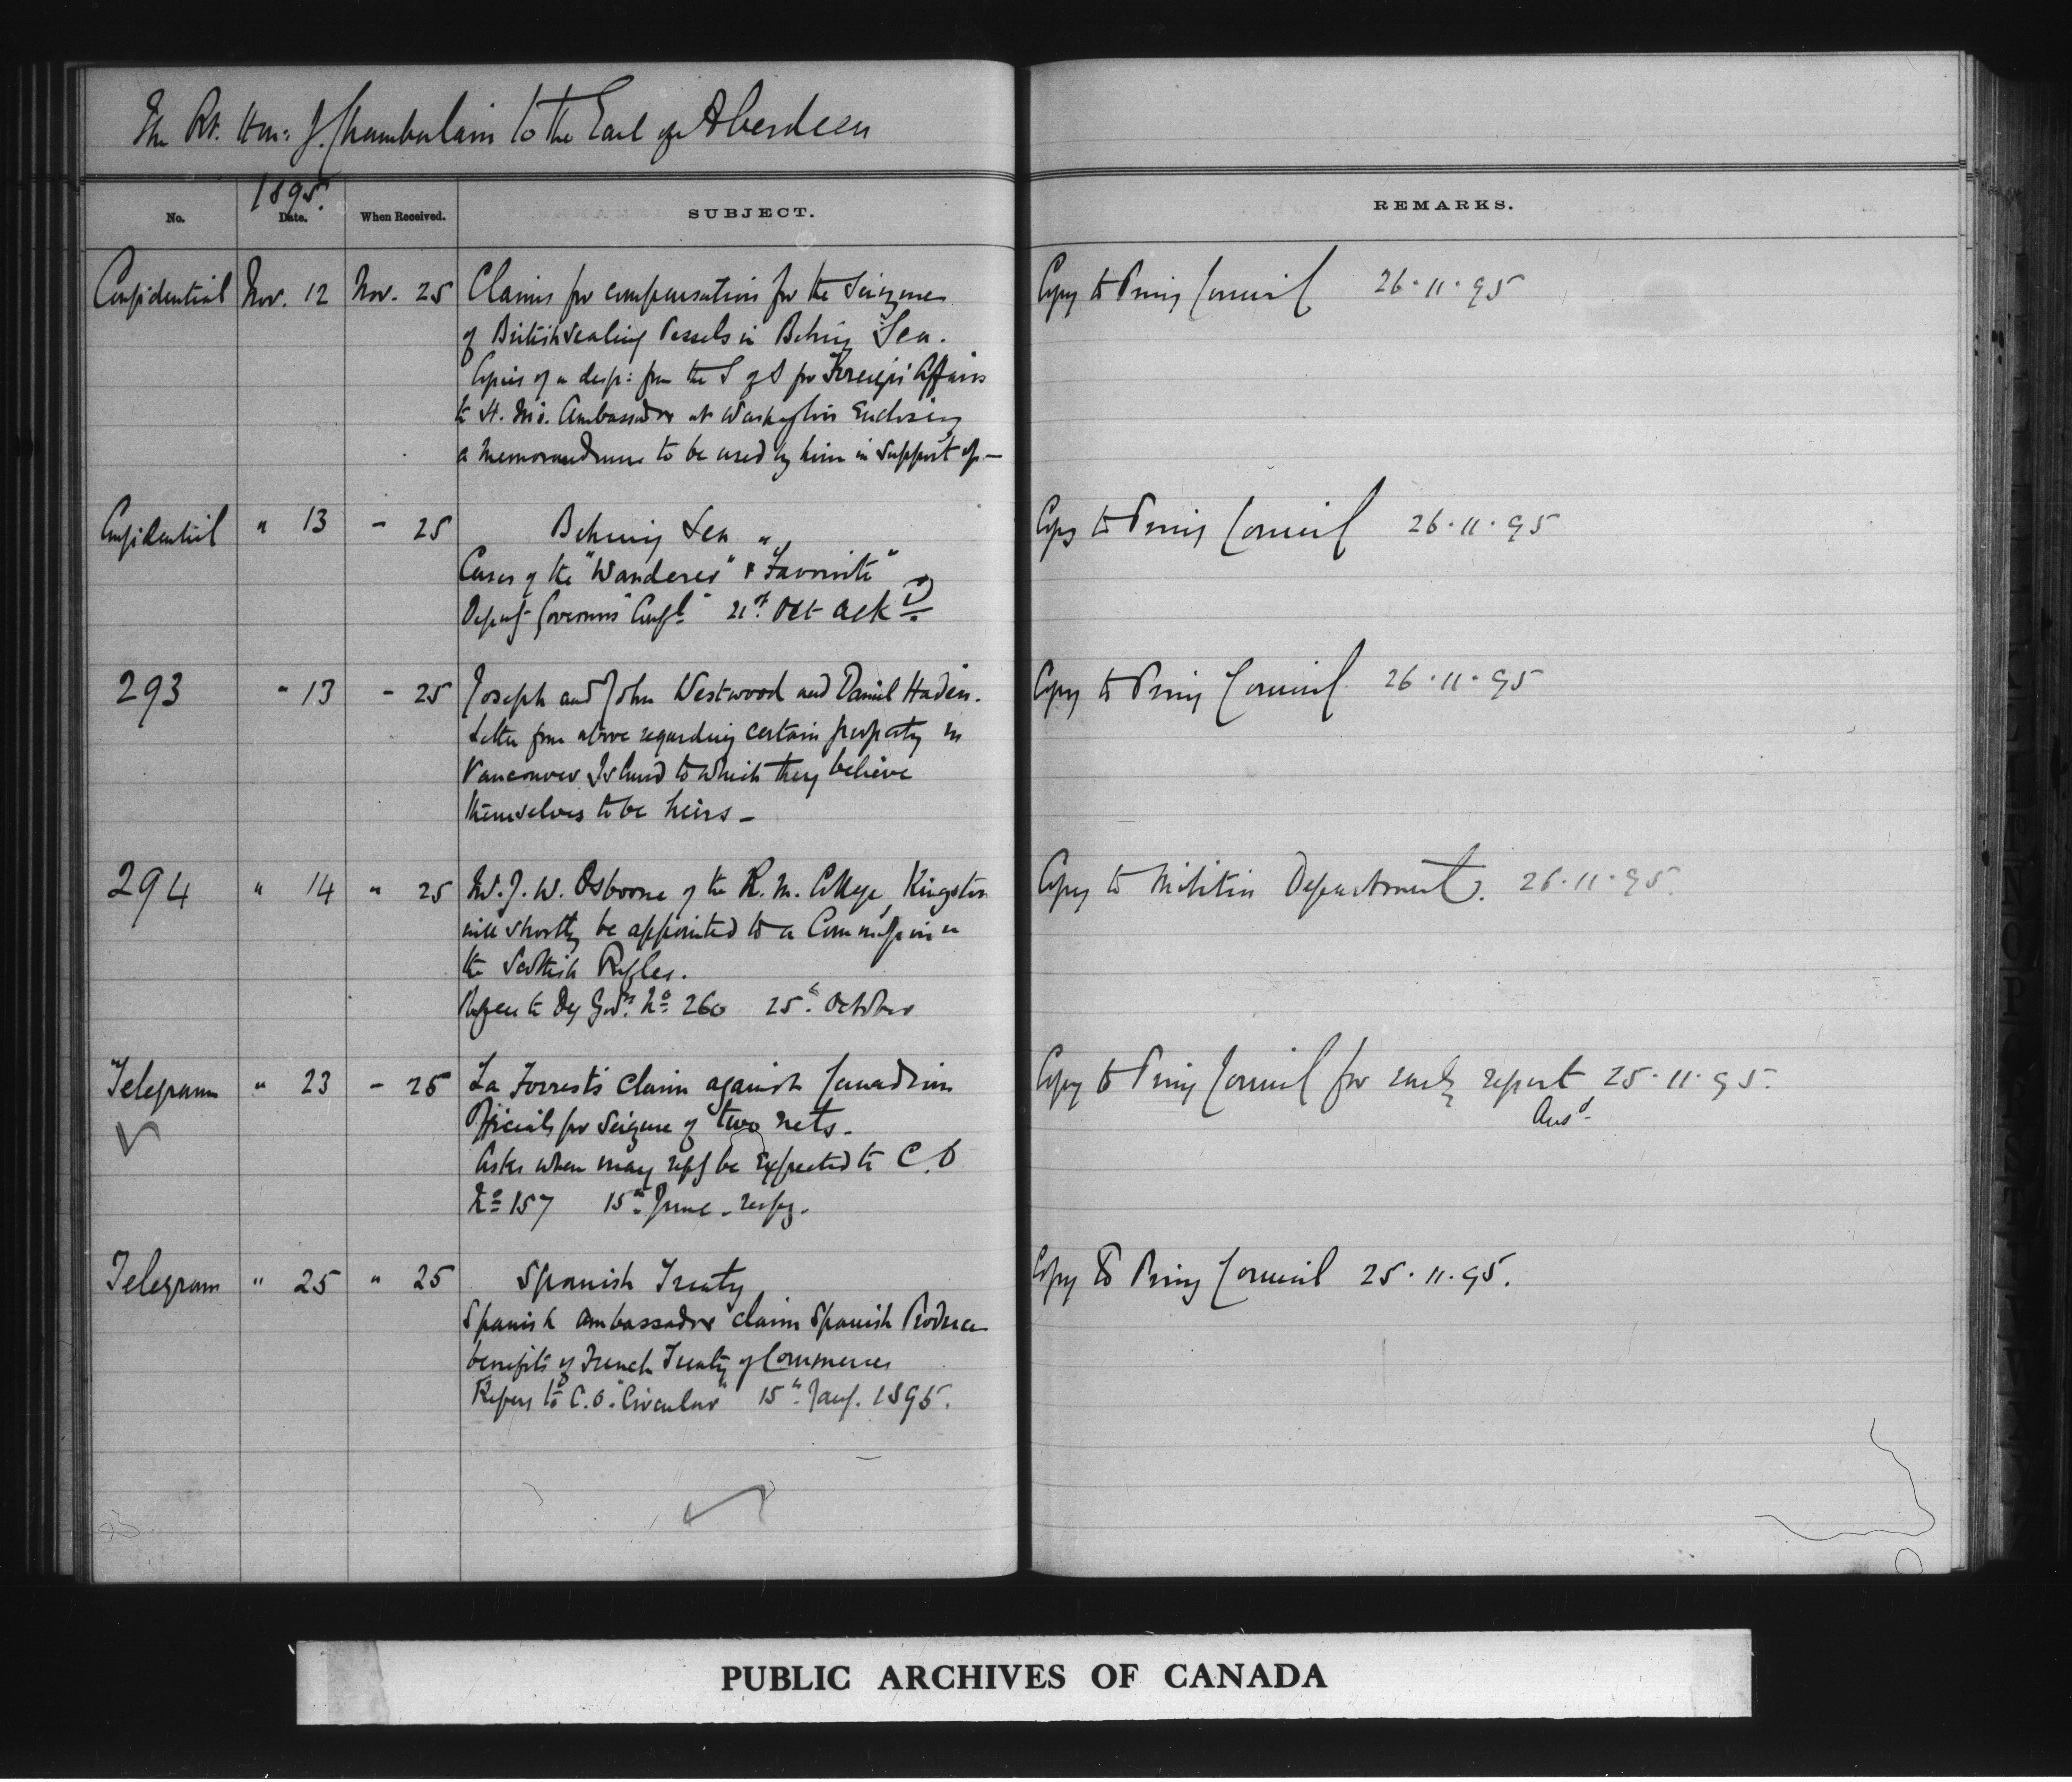 The Rt. Hon: J. Chamberlain to the Earl of Aberdeen
1895.
No. Date. When Received. SUBJECT. REMARKS.
Confidential Nov. 12 Nov. 25 Claims for compensation for the Seizures Copy to Privy Council 26.11.95
of British Sealing Vessels in Behring Sea.
Copies of a desp: from the S of S for Foreign Affairs
to H. M's. Ambassador at Washington Enclosing
a Memorandum to be used by him in support of —
Confidential " 13 - 25 Behring Sea " Copy to Privy Council 26.11.95
Cases of the "Wanderer" & "Favorite"
Deputy Governor's "Confl." 21st Oct ackD.
293 " 13 - 25 Joseph and John Westwood and Daniel Haden. Copy to Privy Council 26.11.95
Letter from above regarding certain property in
Vancouver Island to which they believe
themselves to be heirs —
294 " 14 " 25 Mr. J. W. Osborne of the R. M. College, Kingston Copy to Militia Department. 26.11.95.
will shortly be appointed to a Commission in
the Scottish Rifles.
to Dy Govr's No. 260 25th October
Telegram " 23 - 25 La Forrest's claim against Canadian Copy to Privy Council for early report 25.11.95.
Officials for Seizure of two nets. Ansd.
Asks when may reply be Expected to C.O
No 157 15th June.
Telegram " 25 " 25 Spanish Treaty Copy to Privy Council 25.11.95.
Spanish Ambassador claim Spanish Produce
benefits of French Treaty of Commerce
Refers to C.O. "Circular" 15th Jany. 1895.
PUBLIC ARCHIVES OF CANADA